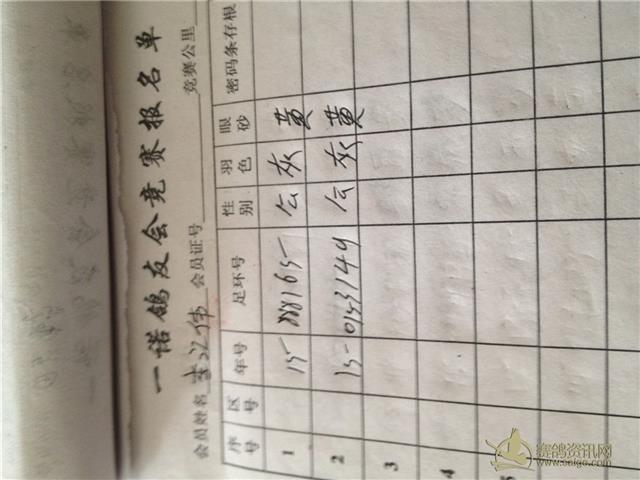 一诺鸽友会竞赛报名单
会员姓名 会员证号 竞赛公里
序号 区号 年号 足环号 性别 羽色 眼砂 密码条存根
1 15- 灰 黄
2 15-0153149 灰 黄
3
4
5
赛鸽资讯网
www.saige.com